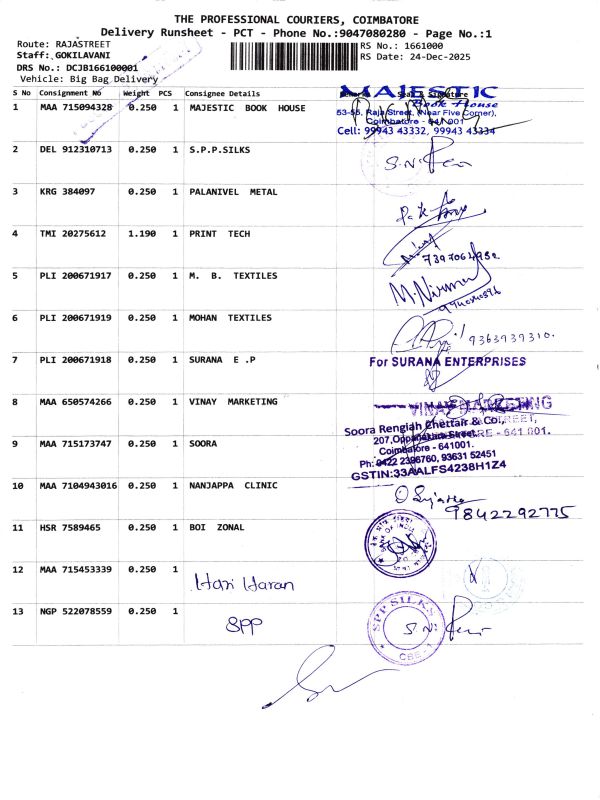 THE PROFESSIONAL COURIERS, COIMBATORE
Delivery Runsheet - PCT - Phone No.:9047080280 - Page No.:1
Route: RAJASTREET
Staff: GOKILAVANI
DRS No.: DCJB166100001
Vehicle: Big Bag Delivery
RS No.: 1661000
RS Date: 24-Dec-2025
S No Consignment No Weight PCS Consignee Details Seal & Signature
1 MAA 715094328 0.250 1 MAJESTIC BOOK HOUSE
MAJESTIC
Book House
53-55, Raja Street, (Near Five Corner),
Coimbatore - 641 001
Cell: 99943 43332, 99943 43334
2 DEL 912310713 0.250 1 S.P.P.SILKS
3 KRG 384097 0.250 1 PALANIVEL METAL
4 TMI 20275612 1.190 1 PRINT TECH
5 PLI 200671917 0.250 1 M. B. TEXTILES
M.Nirmal
6 PLI 200671919 0.250 1 MOHAN TEXTILES
9363939310.
7 PLI 200671918 0.250 1 SURANA E .P
For SURANA ENTERPRISES
8 MAA 650574266 0.250 1 VINAY MARKETING
VINAY MARKETING
9 MAA 715173747 0.250 1 SOORA
Soora Rengiah Chettair & Co.,
207, Oppanakara Street,
Coimbatore - 641001.
Ph: 0422 2396760, 93631 52451
GSTIN:33AALFS4238H1Z4
10 MAA 7104943016 0.250 1 NANJAPPA CLINIC
O Sujatha
9842292775
11 HSR 7589465 0.250 1 BOI ZONAL
BANK OF INDIA
12 MAA 715453339 0.250 1
Hari Haran
13 NGP 522078559 0.250 1
SPP
SPP SILKS
CBE - 1